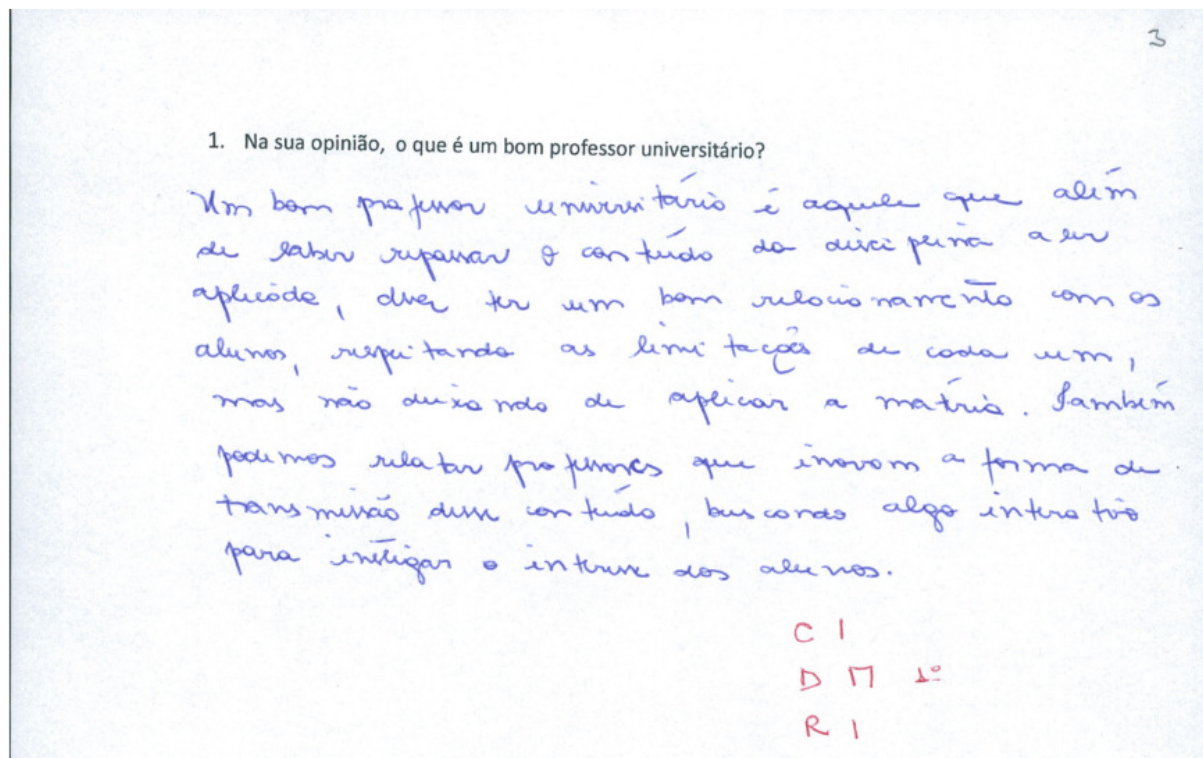 3
1. Na sua opinião, o que é um bom professor universitário?
Um bom professor universitário é aquele que além
de saber repassar o conteúdo da disciplina a ser
aplicada, deve ter um bom relacionamento com os
alunos, respeitando as limitações de cada um,
mas não deixando de aplicar a matéria. Também
podemos relatar professores que inovam a forma de
transmissão desse conteúdo, buscando algo interativo
para instigar o interesse dos alunos.
C I
D M 1º
R I